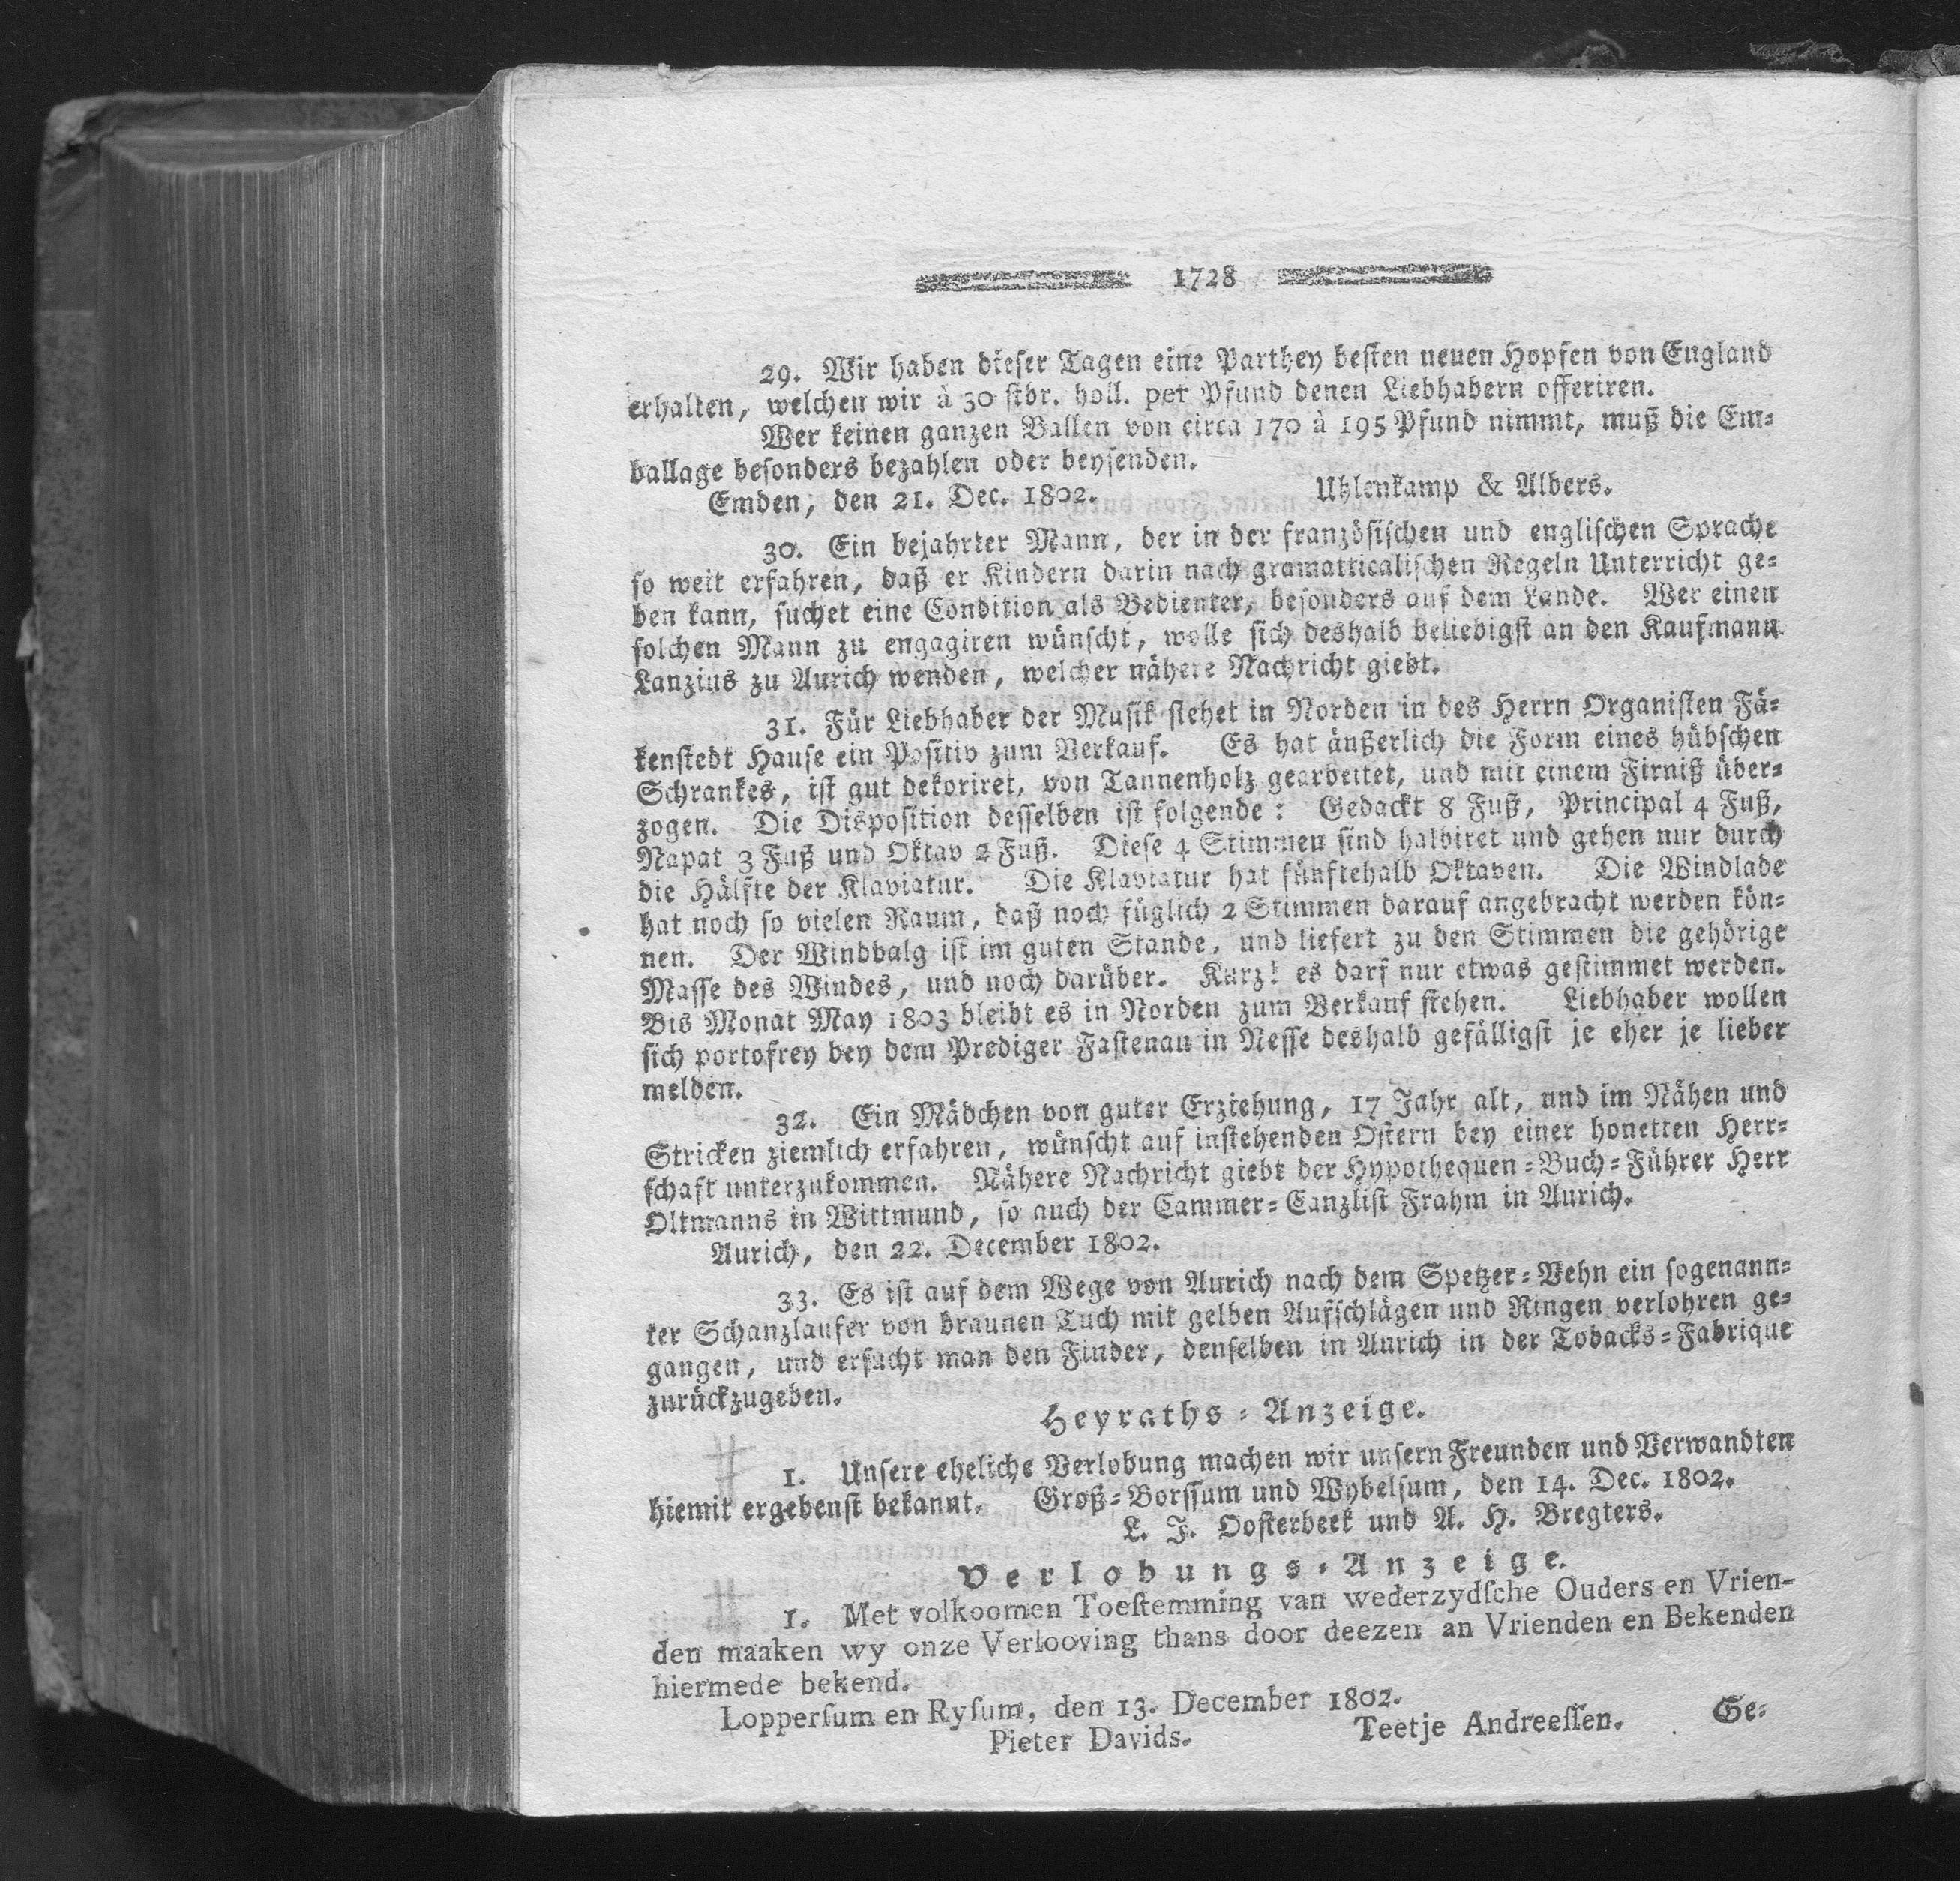 1728
29. Wir haben dieser Tagen eine Parthey besten neuen Hopfen von England
erhalten, welchen wir à 30 stbr. holl. per Pfund denen Liebhabern offeriren.
Wer keinen ganzen Ballen von circa 170 à 195 Pfund nimmt, muß die Em-
ballage besonders bezahlen oder beysenden.
Emden, den 21. Dec. 1802. Uhlenkamp & Albers.
30. Ein bejahrter Mann, der in der französischen und englischen Sprache
so weit erfahren, daß er Kindern darin nach gramatticalischen Regeln Unterricht ge-
ben kann, suchet eine Condition als Bedienter, besonders auf dem Lande. Wer einen
solchen Mann zu engagiren wünscht, wolle sich deshalb beliebigst an den Kaufmann
Lanzius zu Aurich wenden, welcher nähere Nachricht giebt.
31. Für Liebhaber der Musik stehet in Norden in des Herrn Organisten Fä-
kenstedt Hause ein Positiv zum Verkauf. Es hat äußerlich die Form eines hübschen
Schrankes, ist gut dekoriret, von Tannenholz gearbeitet, und mit einem Firniß über-
zogen. Die Disposition desselben ist folgende: Gedackt 8 Fuß, Principal 4 Fuß,
Napat 3 Fuß und Oktav 2 Fuß. Diese 4 Stimmen sind halbiret und gehen nur durch
die Hälfte der Klaviatur. Die Klaviatur hat fünftehalb Oktaven. Die Windlade
hat noch so vielen Raum, daß noch füglich 2 Stimmen darauf angebracht werden kön-
nen. Der Windbalg ist im guten Stande, und liefert zu den Stimmen die gehörige
Masse des Windes, und noch darüber. Kurz! es darf nur etwas gestimmet werden.
Bis Monat May 1803 bleibt es in Norden zum Verkauf stehen. Liebhaber wollen
sich portofrey bey dem Prediger Fastenau in Nesse deshalb gefälligst je eher je lieber
melden.
32. Ein Mädchen von guter Erziehung, 17 Jahr alt, und im Nähen und
Stricken ziemlich erfahren, wünscht auf instehenden Ostern bey einer honetten Herr-
schaft unterzukommen. Nähere Nachricht giebt der Hypothequen-Buch-Führer Herr
Oltmanns in Wittmund, so auch der Cammer-Canzlist Frahm in Aurich.
Aurich, den 22. December 1802.
33. Es ist auf dem Wege von Aurich nach dem Spetzer-Vehn ein sogenann-
ter Schanzlaufer von braunen Tuch mit gelben Aufschlägen und Ringen verlohren ge-
gangen, und ersucht man den Finder, denselben in Aurich in der Tobacks-Fabrique
zurückzugeben.
Heyraths-Anzeige.
1. Unsere eheliche Verlobung machen wir unsern Freunden und Verwandten
hiemit ergebenst bekannt. Groß-Borssum und Wybelsum, den 14. Dec. 1802.
L. J. Oosterbeek und A. H. Bregters.
Verlobungs-Anzeige.
1. Met volkoomen Toestemming van wederzydsche Ouders en Vrien-
den maaken wy onze Verlooving thans door deezen an Vrienden en Bekenden
hiermede bekend.
Loppersum en Rysum, den 13. December 1802.
Pieter Davids. Teetje Andreessen.
Ge-